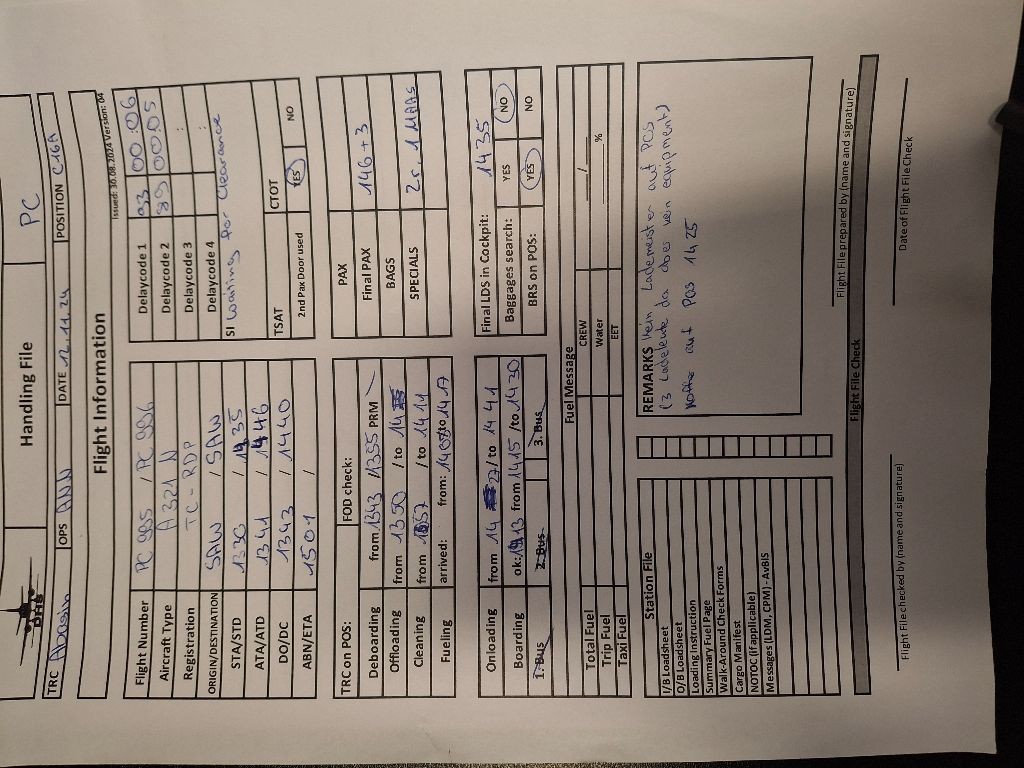 DHS
Handling File
PC
TRC Abasin OPS ANN DATE 12.11.24 POSITION C16A
Flight Information
Issued: 30.08.2024 Version: 04
Flight Number PC 985 / PC 986 Delaycode 1 93 00:06
Aircraft Type A 321 N Delaycode 2 89 00:05
Registration TC-RDP Delaycode 3 :
ORIGIN/DESTINATION SAW / SAW Delaycode 4 :
STA/STD 1330 / 1435 SI waiting for clearance
ATA/ATD 1341 / 1446
DO/DC 1343 / 1440 TSAT CTOT
ABN/ETA 1501 / 2nd Pax Door used YES NO
TRC on POS: FOD check: PAX
Deboarding from 1343 / 1355 PRM Final PAX 146+3
Offloading from 1350 / to 14 BAGS
Cleaning from 1357 / to 1411 SPECIALS 2r, 1 MAAS
Fueling arrived: from: 1408/to 1417
Onloading from 14 27/ to 1441 Final LDS in Cockpit: 1435
Boarding ok: 1413 from 1415 /to 1430 Baggages search: YES NO
1. Bus 2. Bus 3. Bus BRS on POS: YES NO
Fuel Message
Total Fuel CREW /
Trip Fuel Water %
Taxi Fuel EET
Station File
I/B Loadsheet
O/B Loadsheet
Loading Instruction
Summary Fuel Page
Walk-Around Check Forms
Cargo Manifest
NOTOC (if applicable)
Messages (LDM, CPM) - AvBIS
REMARKS kein Lademeister auf POS
(3 Ladeleute da aber kein equipment)
Koffer auf POS 1425
Flight File prepared by (name and signature)
Flight File Check
Flight File checked by (name and signature)
Date of Flight File Check